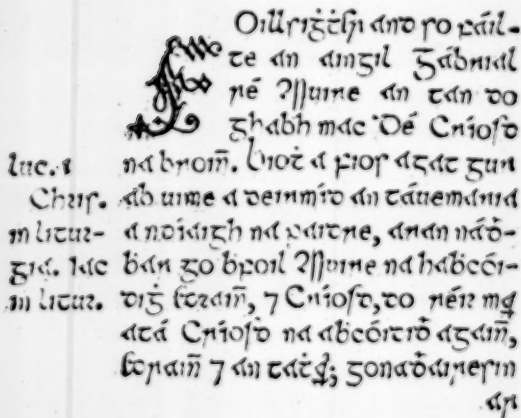 Foillsiġthi and so fáil-
te an aingil Ġabrial
ré Muire an tan do
ghabh mac Dé Criosd
na broiñ. Bioṫ a fios agat gur
ab uime a deirmid an táuemaria
a ndiaigh na paitre, aran náḋ-
bar go bfoil Muire na habcói-
diġ eoraiñ, ⁊ Criosd, do réir mar
atá Criosd na abcóidiḋ agaiñ,
eoraiñ ⁊ an taṫair; gonaḋairesin
ar
luc. 1
Chris.
in litur-
gia. Iac
in litur.